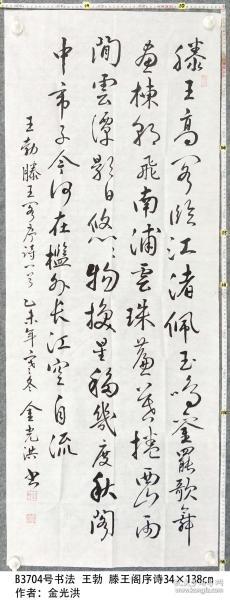 滕王高阁临江渚佩玉鸣銮罷歌舞
画棟朝飛南浦雲珠簾暮捲西山雨
閒雲潭影日悠々物换星移幾度秋阁
中帝子今何在檻外长江空自流
王勃滕王阁序诗一首 乙未年寒冬 金光洪书
B3704号书法 王勃 滕王阁序诗34×138cm
作者：金光洪